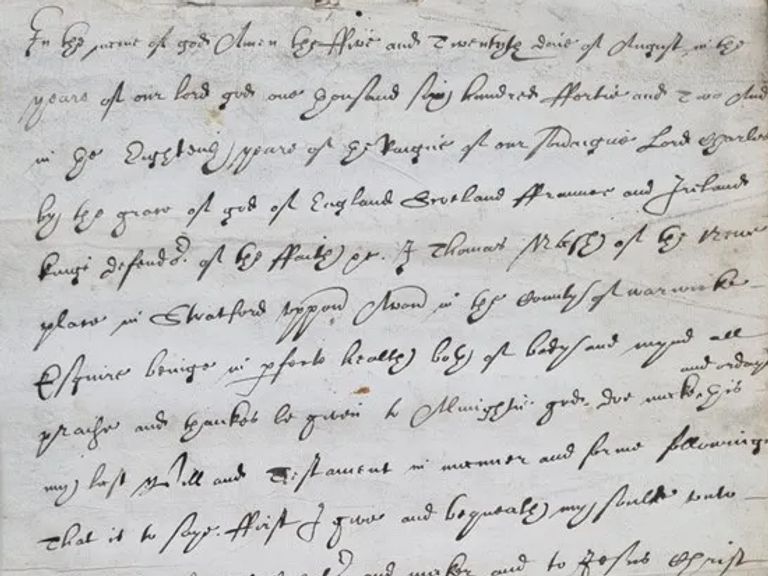 In the name of god Amen the ffive and Twentyth daie of August in the
yeare of our lord god one thousand six hundred ffortie and Two And
in the Eighteenth yeare of the Raigne of our Soveraigne Lord Charles
by the grace of god of England Scotland ffraunce and Ireland
kinge defendor of the ffaith &c. I Thomas Nash of the New
place in Stratford uppon Avon in the County of warwicke
Esquire beinge in pfecte health both of body and mynd all
prayse and thankes be given to Almightie god doe make
and ordayne
this
my last Will and Testament in manner and forme followinge
That is to saye. ffirst I give and bequeath my soule unto
and maker and to Jesus Christ